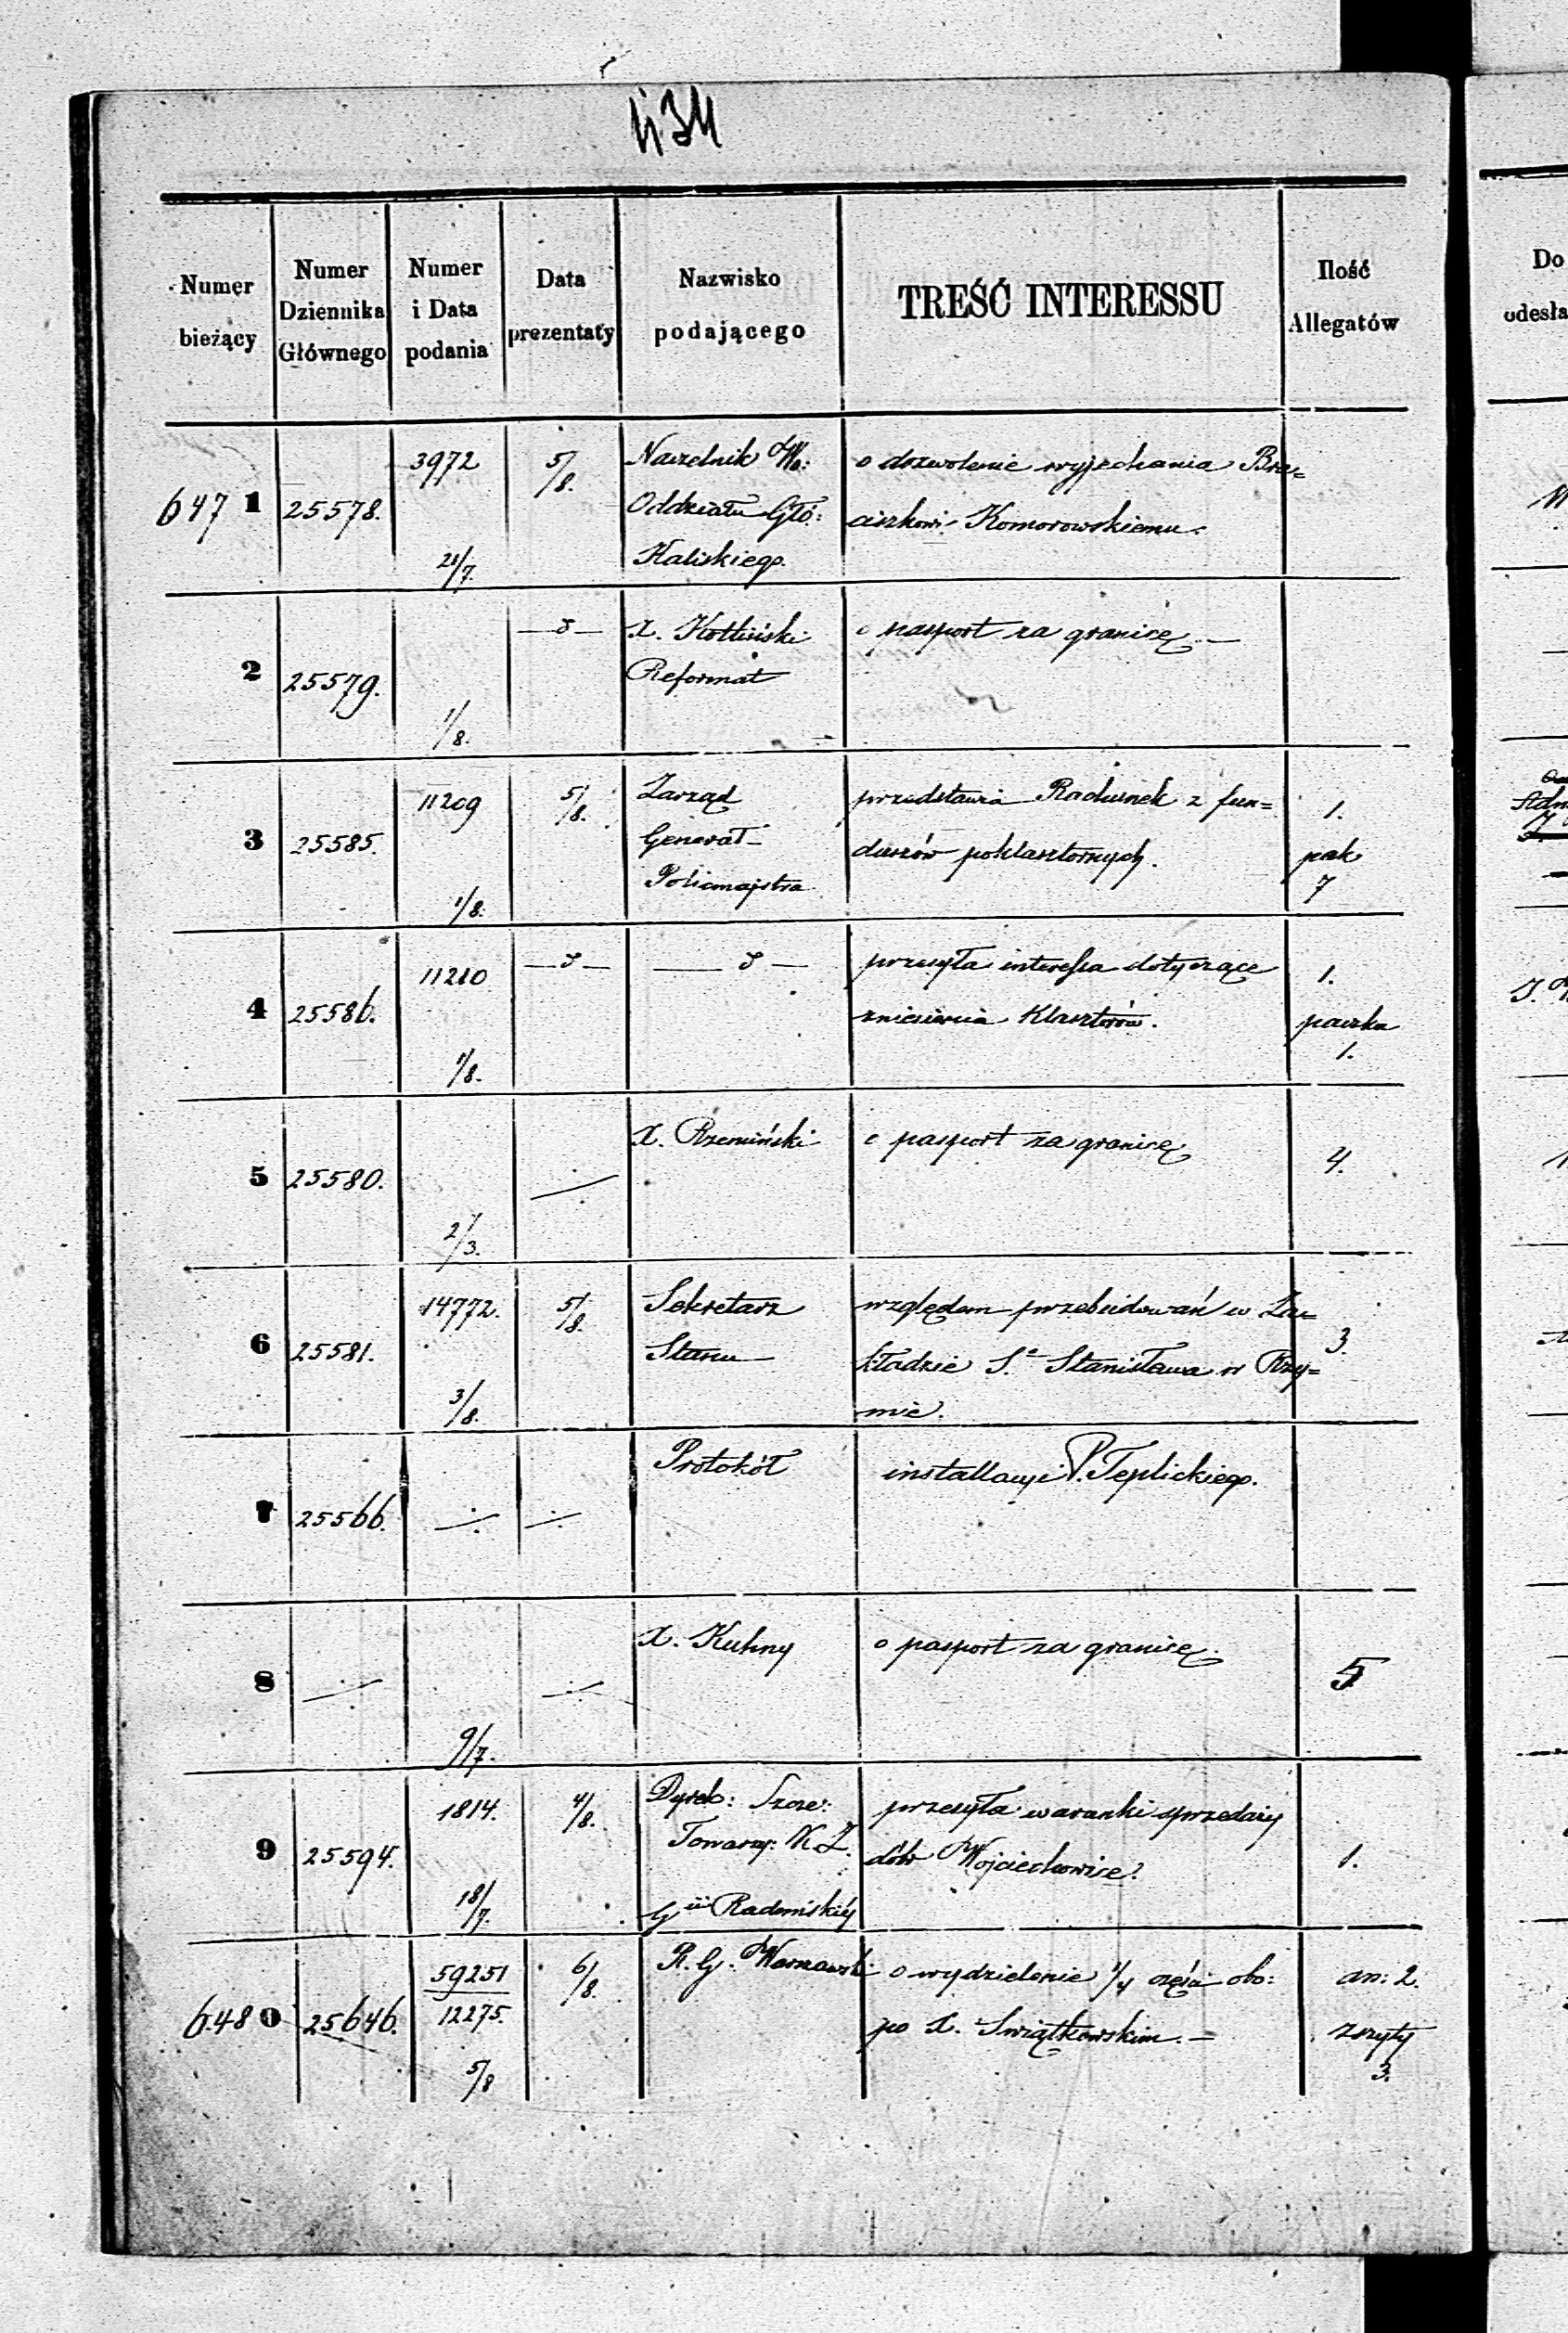 434
Numer bieżący
Numer Dziennika Głównego
Numer i Data podania
Data prezentaty
Nazwisko podającego
TREŚĆ INTERESSU
Ilość Allegatów
Do
odesła
647 1 25578. 3972 5/8. Naczelnik Wo: o dozwolenie wyjechania Bra=
Oddziału Głó: ciszkowi Komorowskiemu.
21/7. Kaliskiego.
2 25579. 1/8. —d— X. Kotliński o pasport za granicę. —
Reformat
3 25585. 11209 5/8. Zarząd przedstawia Rachunek z fun= 1.
Generał- duszów poklasztornych. pak
1/8. Policmajstra 7
4 25586. 11210 —d— —d— przesyła interessa dotyczące 1.
zniesienia Klasztorów. paczka
1/8. 1.
5 25580. 2/3. X. Rzemiński o pasport za granicę 4.
6 25581. 14772. 5/8. Sekretarz względem przebudowań w Za=
Stanu kładzie S. Stanisława w Rzy= 3.
3/8. mie.
7 25566. Protokół installacyi P. Teplickiego.
8 X. Kuhny o pasport za granicę. 5
9/7.
9 25594. 1814. 4/8. Dyrek: Szcze: przesyła warunki sprzedaży
Towarzy: K Z. dóbr Wojciechowice. 1.
18/7. Gii Radomskiéj
648 0 25646. 59251 6/8. R. G. Warszawski o wydzielenie 1/4 części obo: an: 2.
12275. po X. Swiątkowskim. — zszyty
5/8 3.